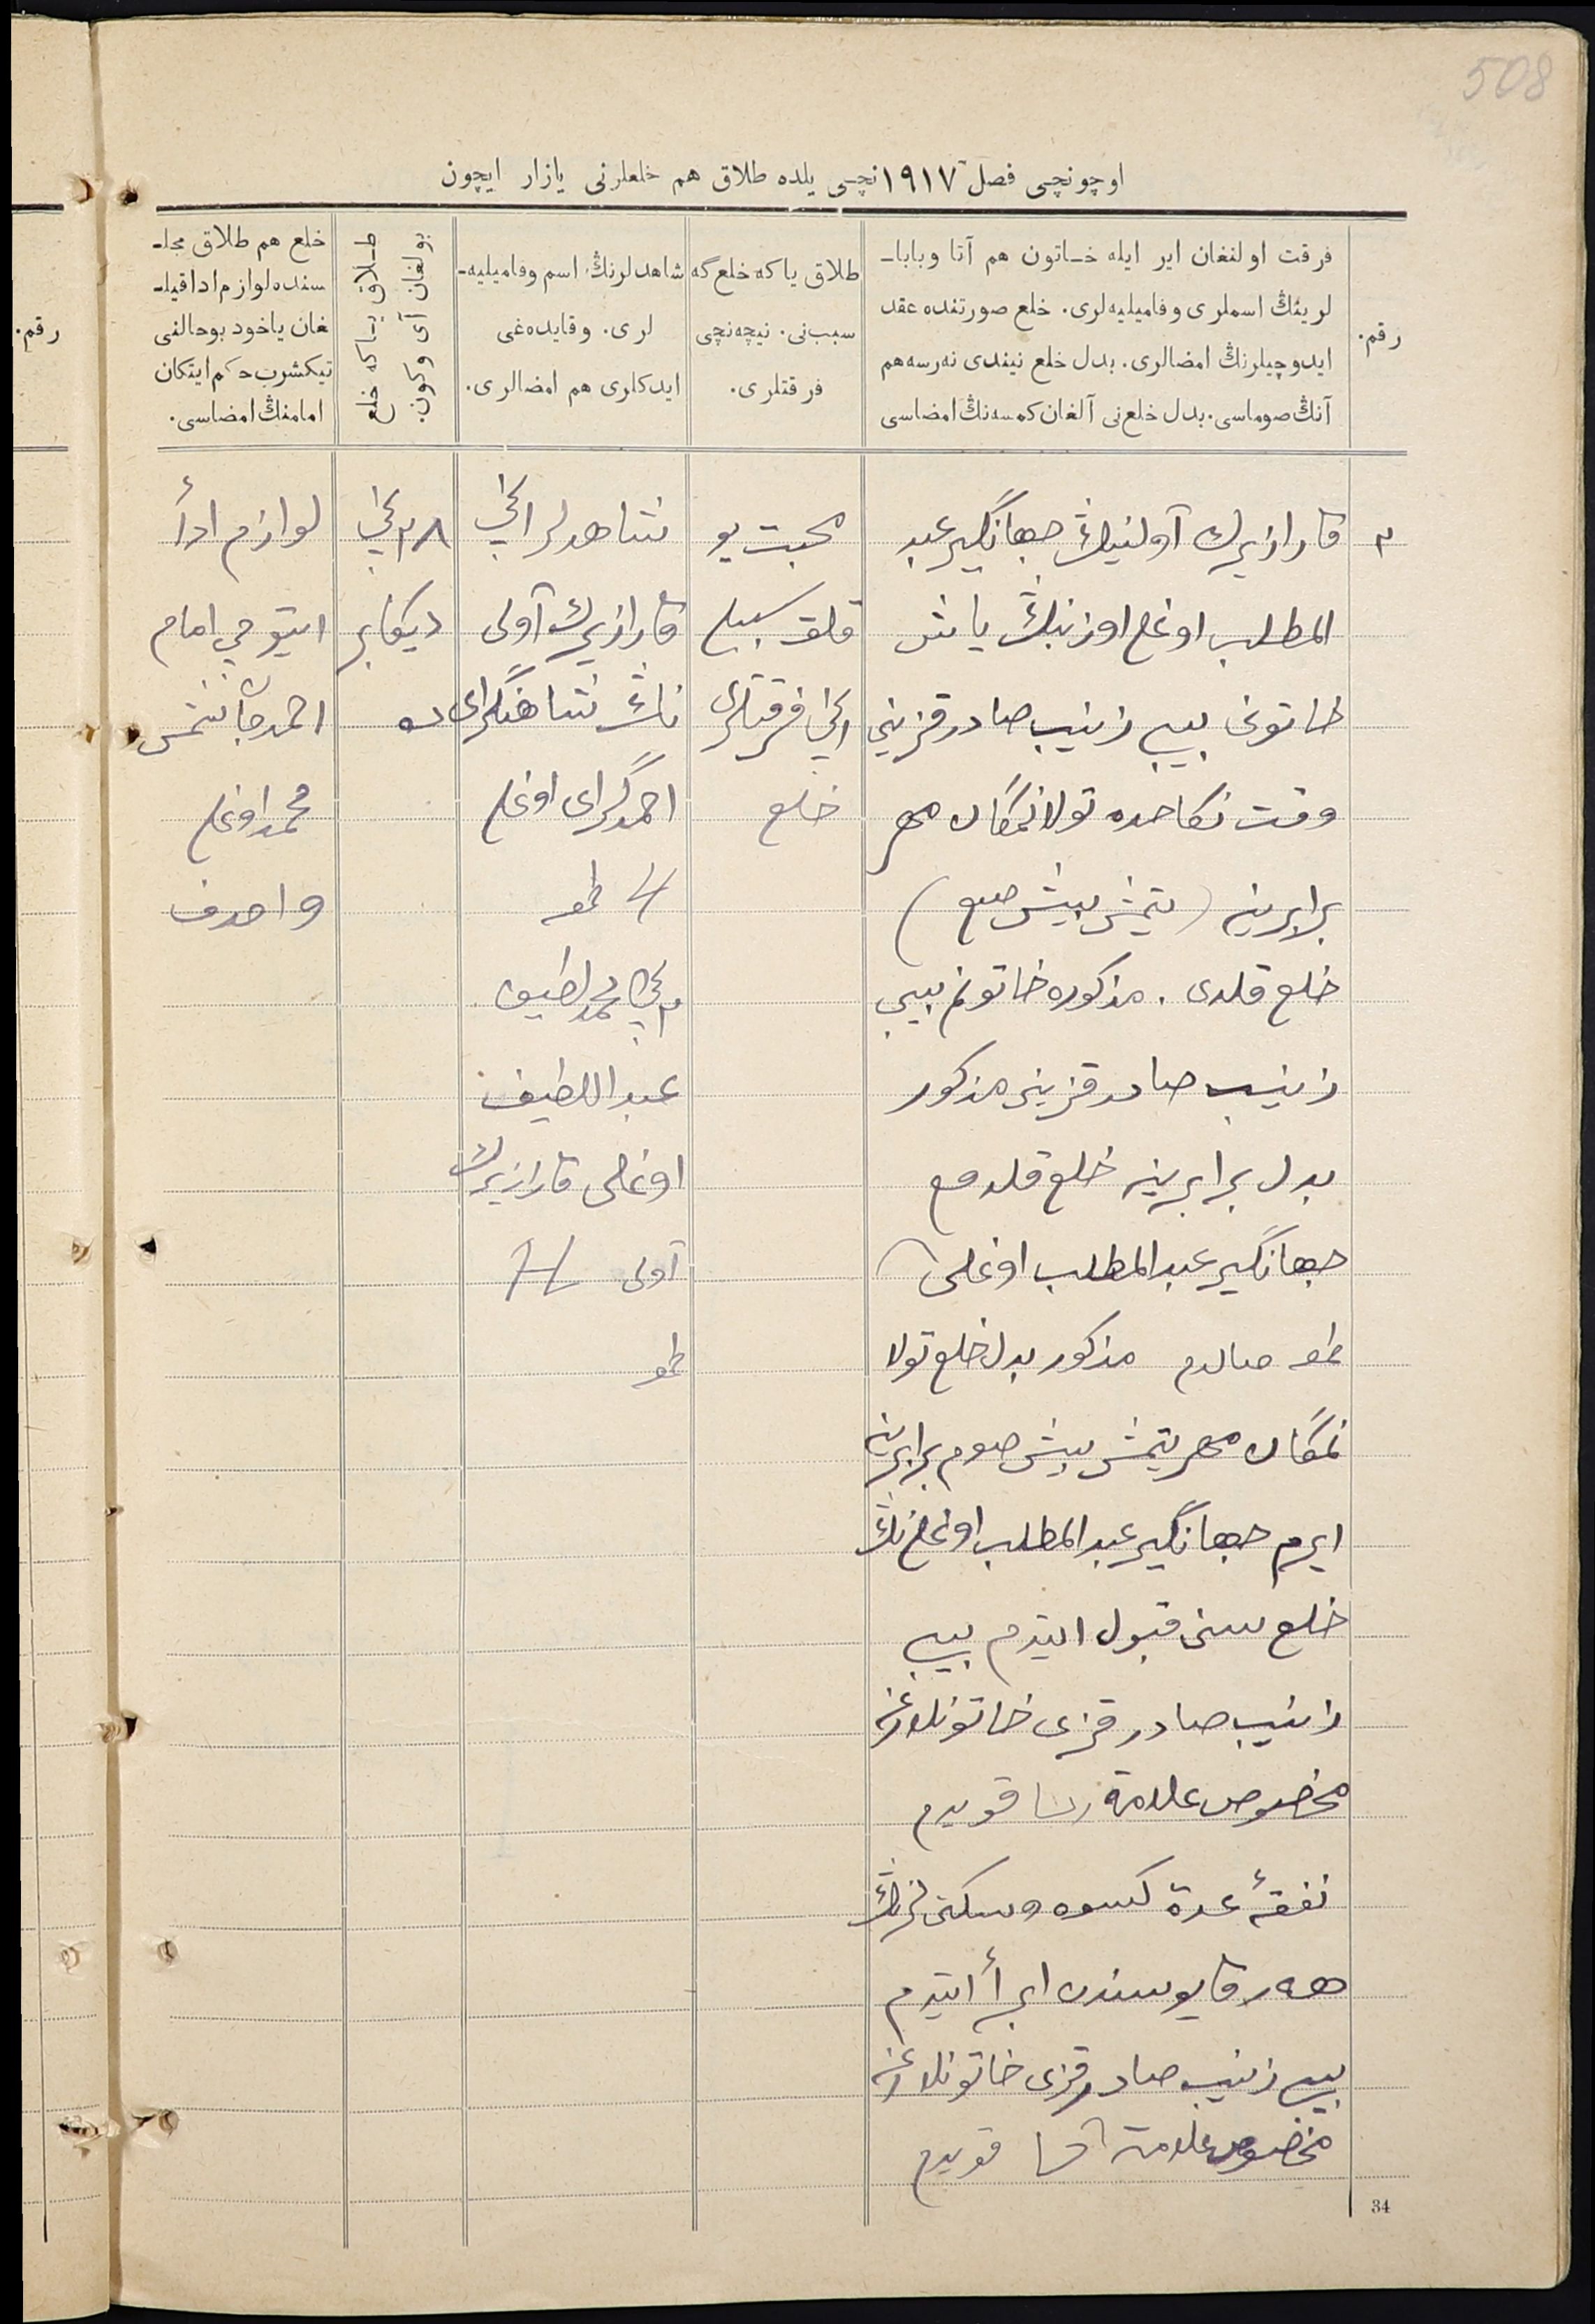 508
اوچونچی فصل ١٩١٧ نچی یلده طلاق هم خلعلرنی یازار ایچون
رقم.
فرقت اولنغان ایر ایله خاتون هم آتا وبابا-
لرینڭ اسملری وفامیلیه‌لری. خلع صورتنده عقد
ایدوچیلرنڭ امضالری. بدل خلع نیندی نه‌رسه هم
آنڭ صوماسی. بدل خلع‌نی آلغان کمسه‌نڭ امضاسی
طلاق یاکه خلع‌گه
سبب‌نی. نیچه‌نچی
فرقتلری.
شاهدلرنڭ اسم وفامیلیه-
لری. وقایده‌غی
ایدکلری هم امضالری.
طلاق یاکه خلع
بولغان آی وکون.
خلع هم طلاق مجلـ
سنده لوازم ادا قیلـ
غان یاخود بوحالنی
تیکشرب حکم ایتکان
امامنڭ امضاسی.
رقم.
٢
قارازیرك آولینڭ جهانگیر عبد
المطلب اوغلی اوزینڭ یاش
خاتونی بیبی زینب صادر قزینی
وقت نکاحده تولانمگان مهر
برابرینه (یتمش بیش صوم)
خلع قلدی. مذکوره خاتونم بیبی
زینب صادر قزینی مذکور
بدل برابرینه خلع قلدم
جهانگیر عبدالمطلب اوغلی
طمغه صالدم مذکور بدل خلع تولا
نمگان مهر یتمش بیش صوم برابرینه
ایرم جهانگیر عبدالمطلب اوغلی‌نڭ
خلع سنی قبول ایتدم بیبی
زینب صادر قزی خاتونلارغه
مخصوص علامة قویدم
نفقۀ عدة کسوه وسکنی لرنڭ
هه‌ر قایوسندن ابرأ ایتدم
بیبی زینب صادر قزی خاتونلارغه
مخصوص علامة قویدم
محبت یو
قلق سببلی
ایکی فرقتلری
خلع
شاهدلر ایکی
قارازیرك آولی
ناڭ شاهنگرای
احمدگرای اوغلی
طمغه
٢ نچی محمدلطیف
عبداللطیف
اوغلی قارازیرك
آولی
طمغه
٢٨ نچی
دیکابر
ده
لوازم ادأ
ایتوچی امام
احمدجان شمس
محمد اوغلی
واحدف
34